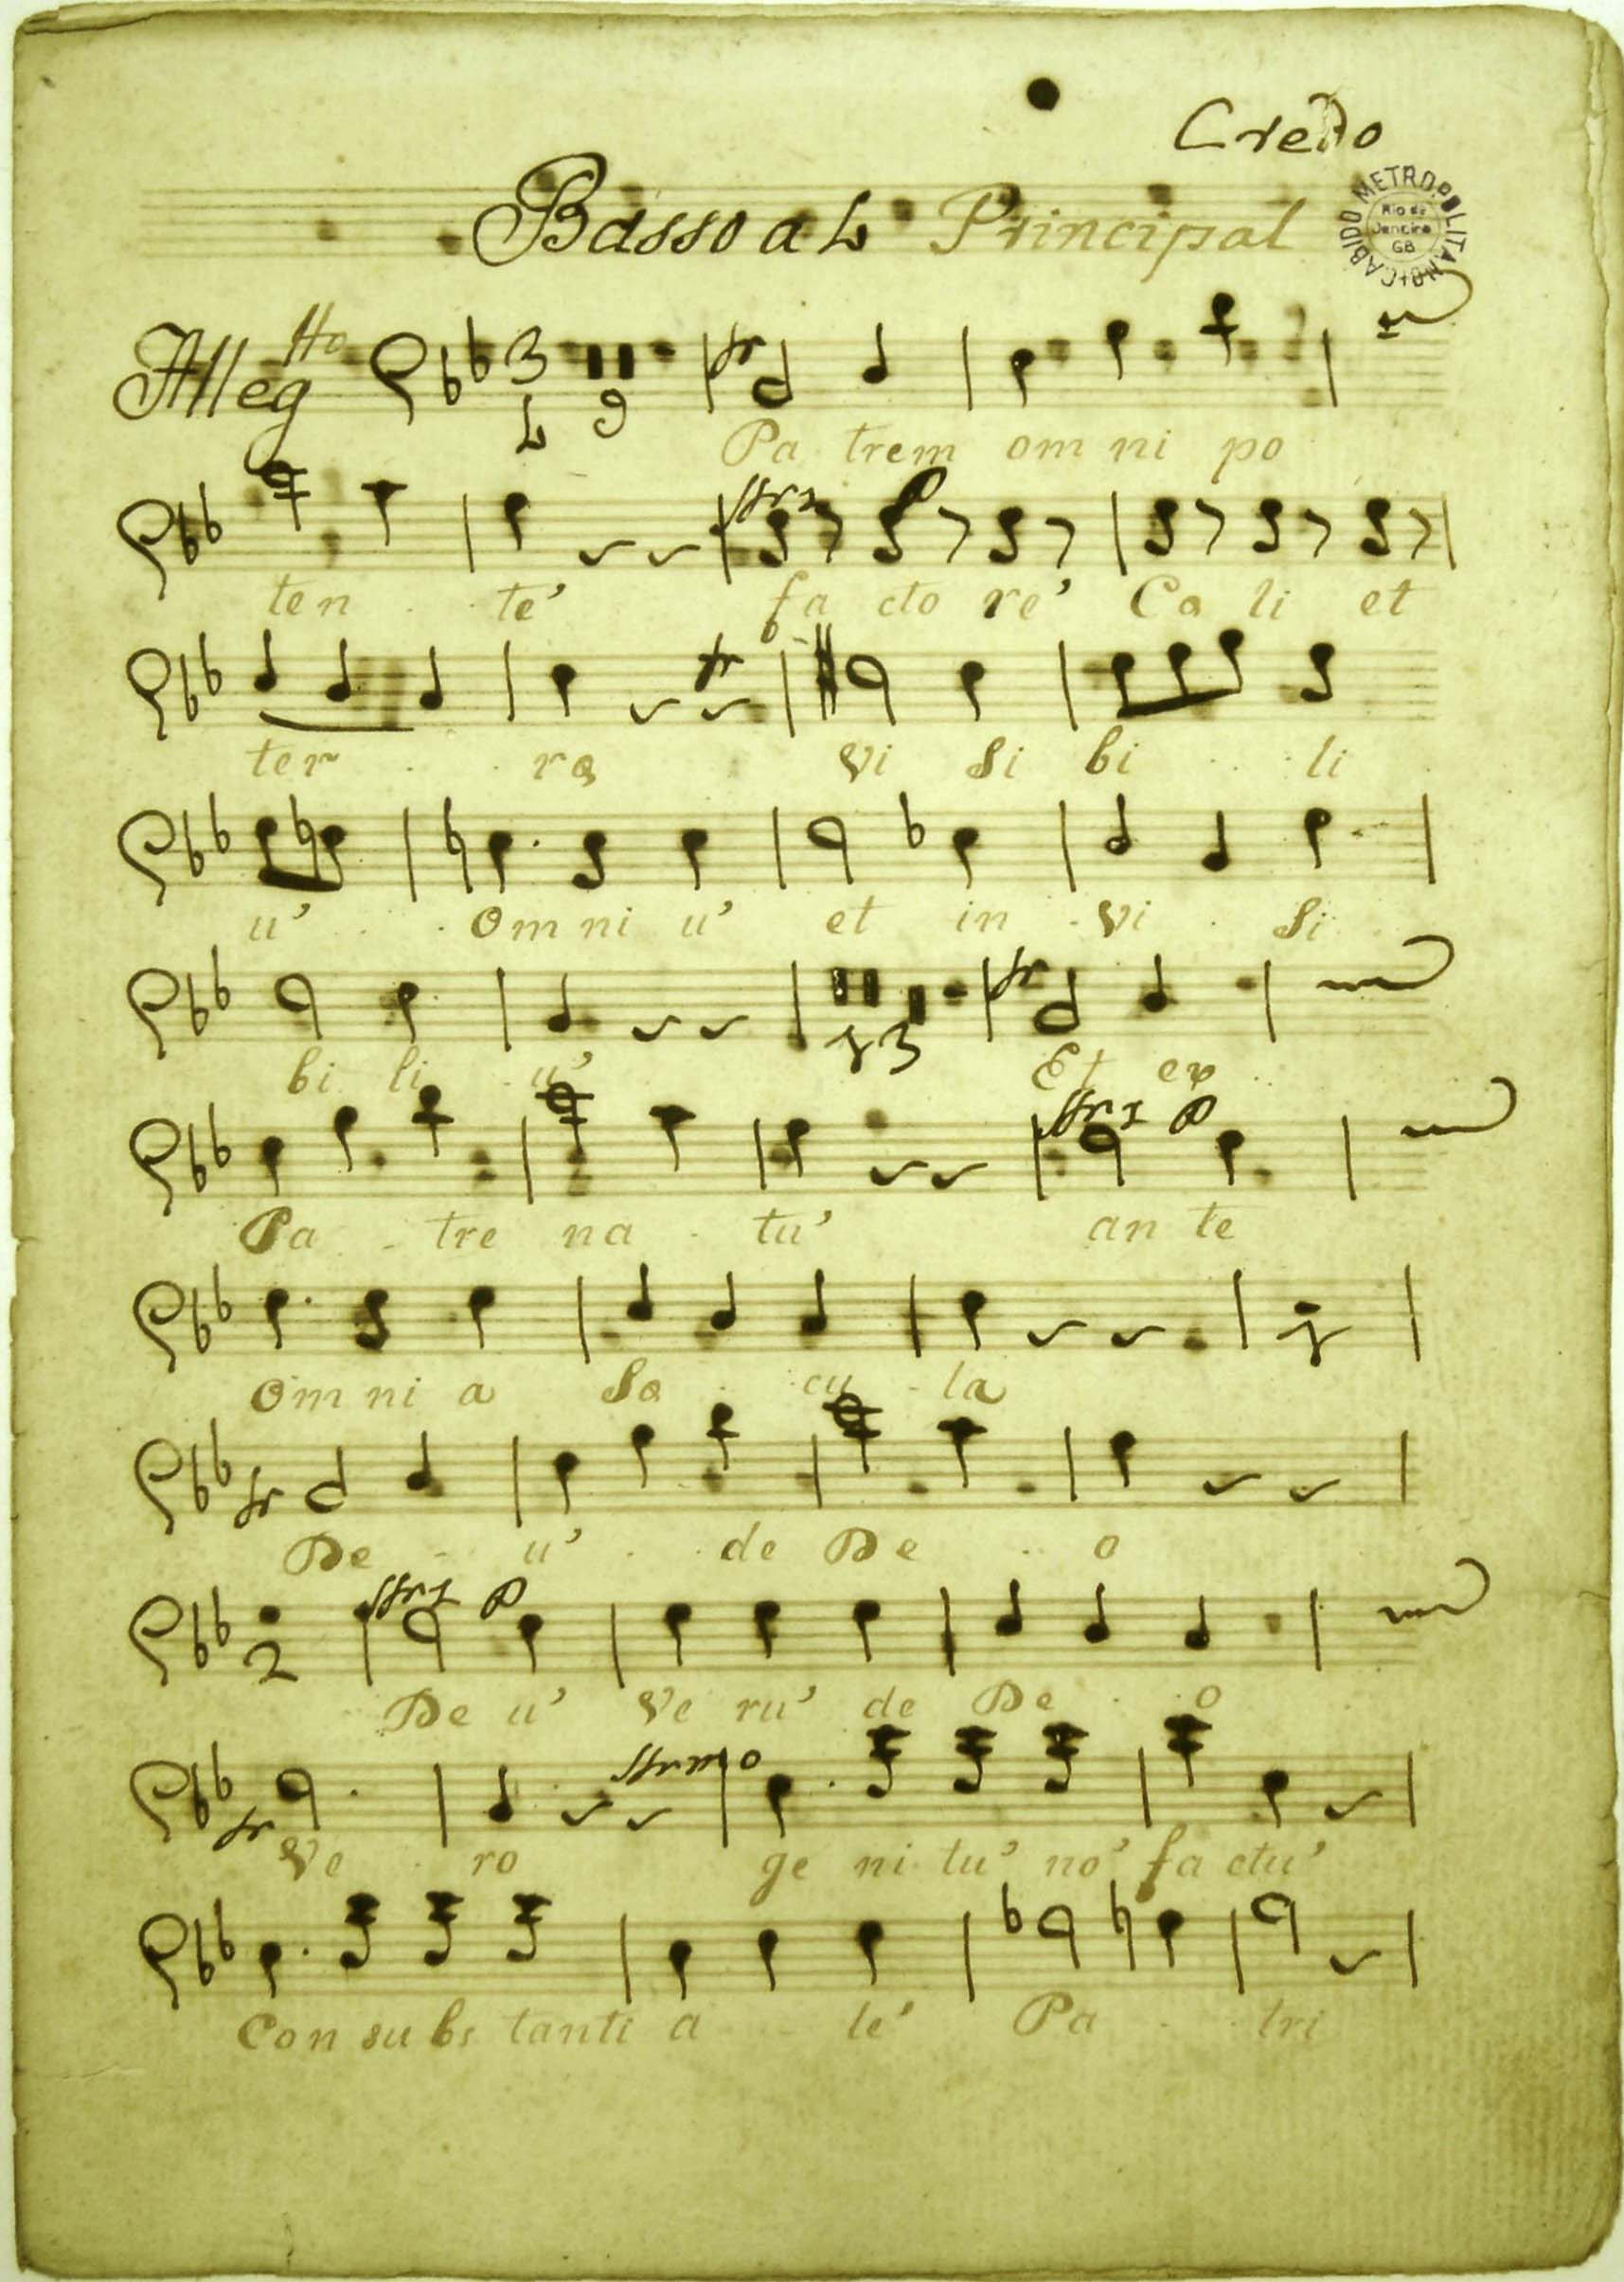 Credo
Basso a 4 Principal
CABIDO METROPOLITANO
Rio de
Janeiro
GB
Alleg tto 3 4 9 fr
Pa trem om ni po
ten te' fa cto re' Cæ li et
ter ra vi si bi li
u' Om ni u' et in vi si
bi li u' Et ex
Pa tre na tu' an te
Om ni a Sæ cu la
De u' de De o
De u' Ve ru' de De o
Ve ro ge ni tu' no' fa ctu'
Con su bs tanti a le' Pa tri